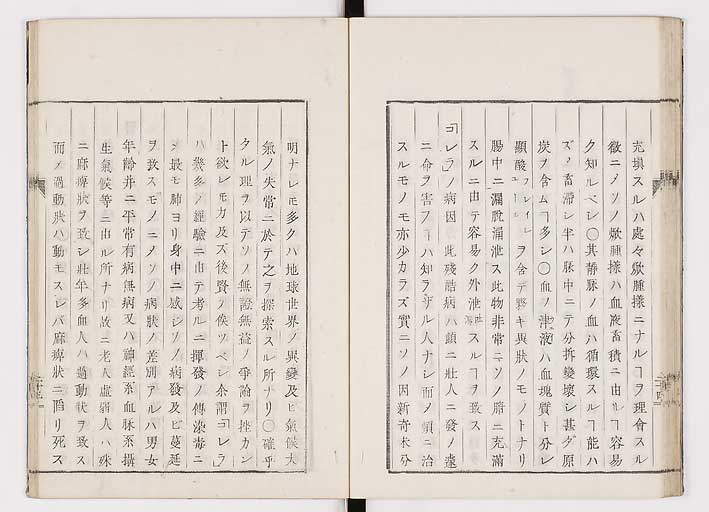 充填スルハ處々欬腫樣ニナルヿヲ理會スル
欲ニメソノ欬腫樣ハ血液畜積ニ由ルヿ容易
ク知ルベシ〇其靜脉ノ血ハ循環スルヿ能ハ
ズメ畜滯シ半ハ脉中ニテ分拆變壞シ甚ダ原
炭ヲ含ムヿ多シ〇血ノ津液ハ血塊質ト分レ
顯酸ヲ含テ野キ異狀ノモノトナリ
腸中ニ漏脫涌泄ス此物非常ニソノ腊ニ充滿
スルニ由テ容易ク外泄スルヿヲ致ス
「コレラ」ノ病因 此殘酷病ハ頗ニ壯人ニ發メ遽
ニ命ヲ害フヿハ知ラザル人ナシ而メ頗ニ治
スルモノモ亦少カラズ實ニソノ因新奇未分
明ナレモ多クハ地球世界ノ異變及ヒ氣候大
氣ノ失常ニ於テ之ヲ探索スル所ナリ〇確乎
タル理ヲ以テソノ無證無益ノ爭論ヲ挫カン
ト欲レモ力及ズ後賢ヲ俟ツベシ余謂「コレラ」
ハ幾多ノ經驗ニ由テ考ルニ揮發ノ傳染毒ニ
メ最モ肺ヨリ身中ニ感シソノ病發及ビ蔓延
ヲ致スモノニメソノ病狀ノ差別アルハ男女
年齡并ニ平常有病無病又ハ神經系血脉系攝
生氣候等ニ由ル所ナリ故ニ老人虛弱人ハ殊
ニ麻痺狀ヲ致シ壯年多血人ハ過動狀ヲ致ス
而メ過動狀ハ動モスレバ麻痺狀ニ陷リ死ス